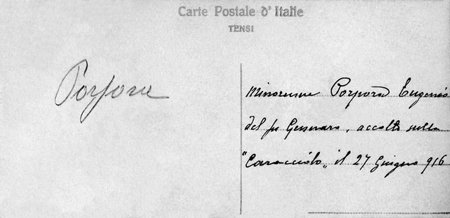 Carte Postale d'Italie
TENSI
Porpora
Minorenne Porpora Eugenio
del fu Gennaro, accolto sulla
"Caracciolo" il 27 Giugno 916